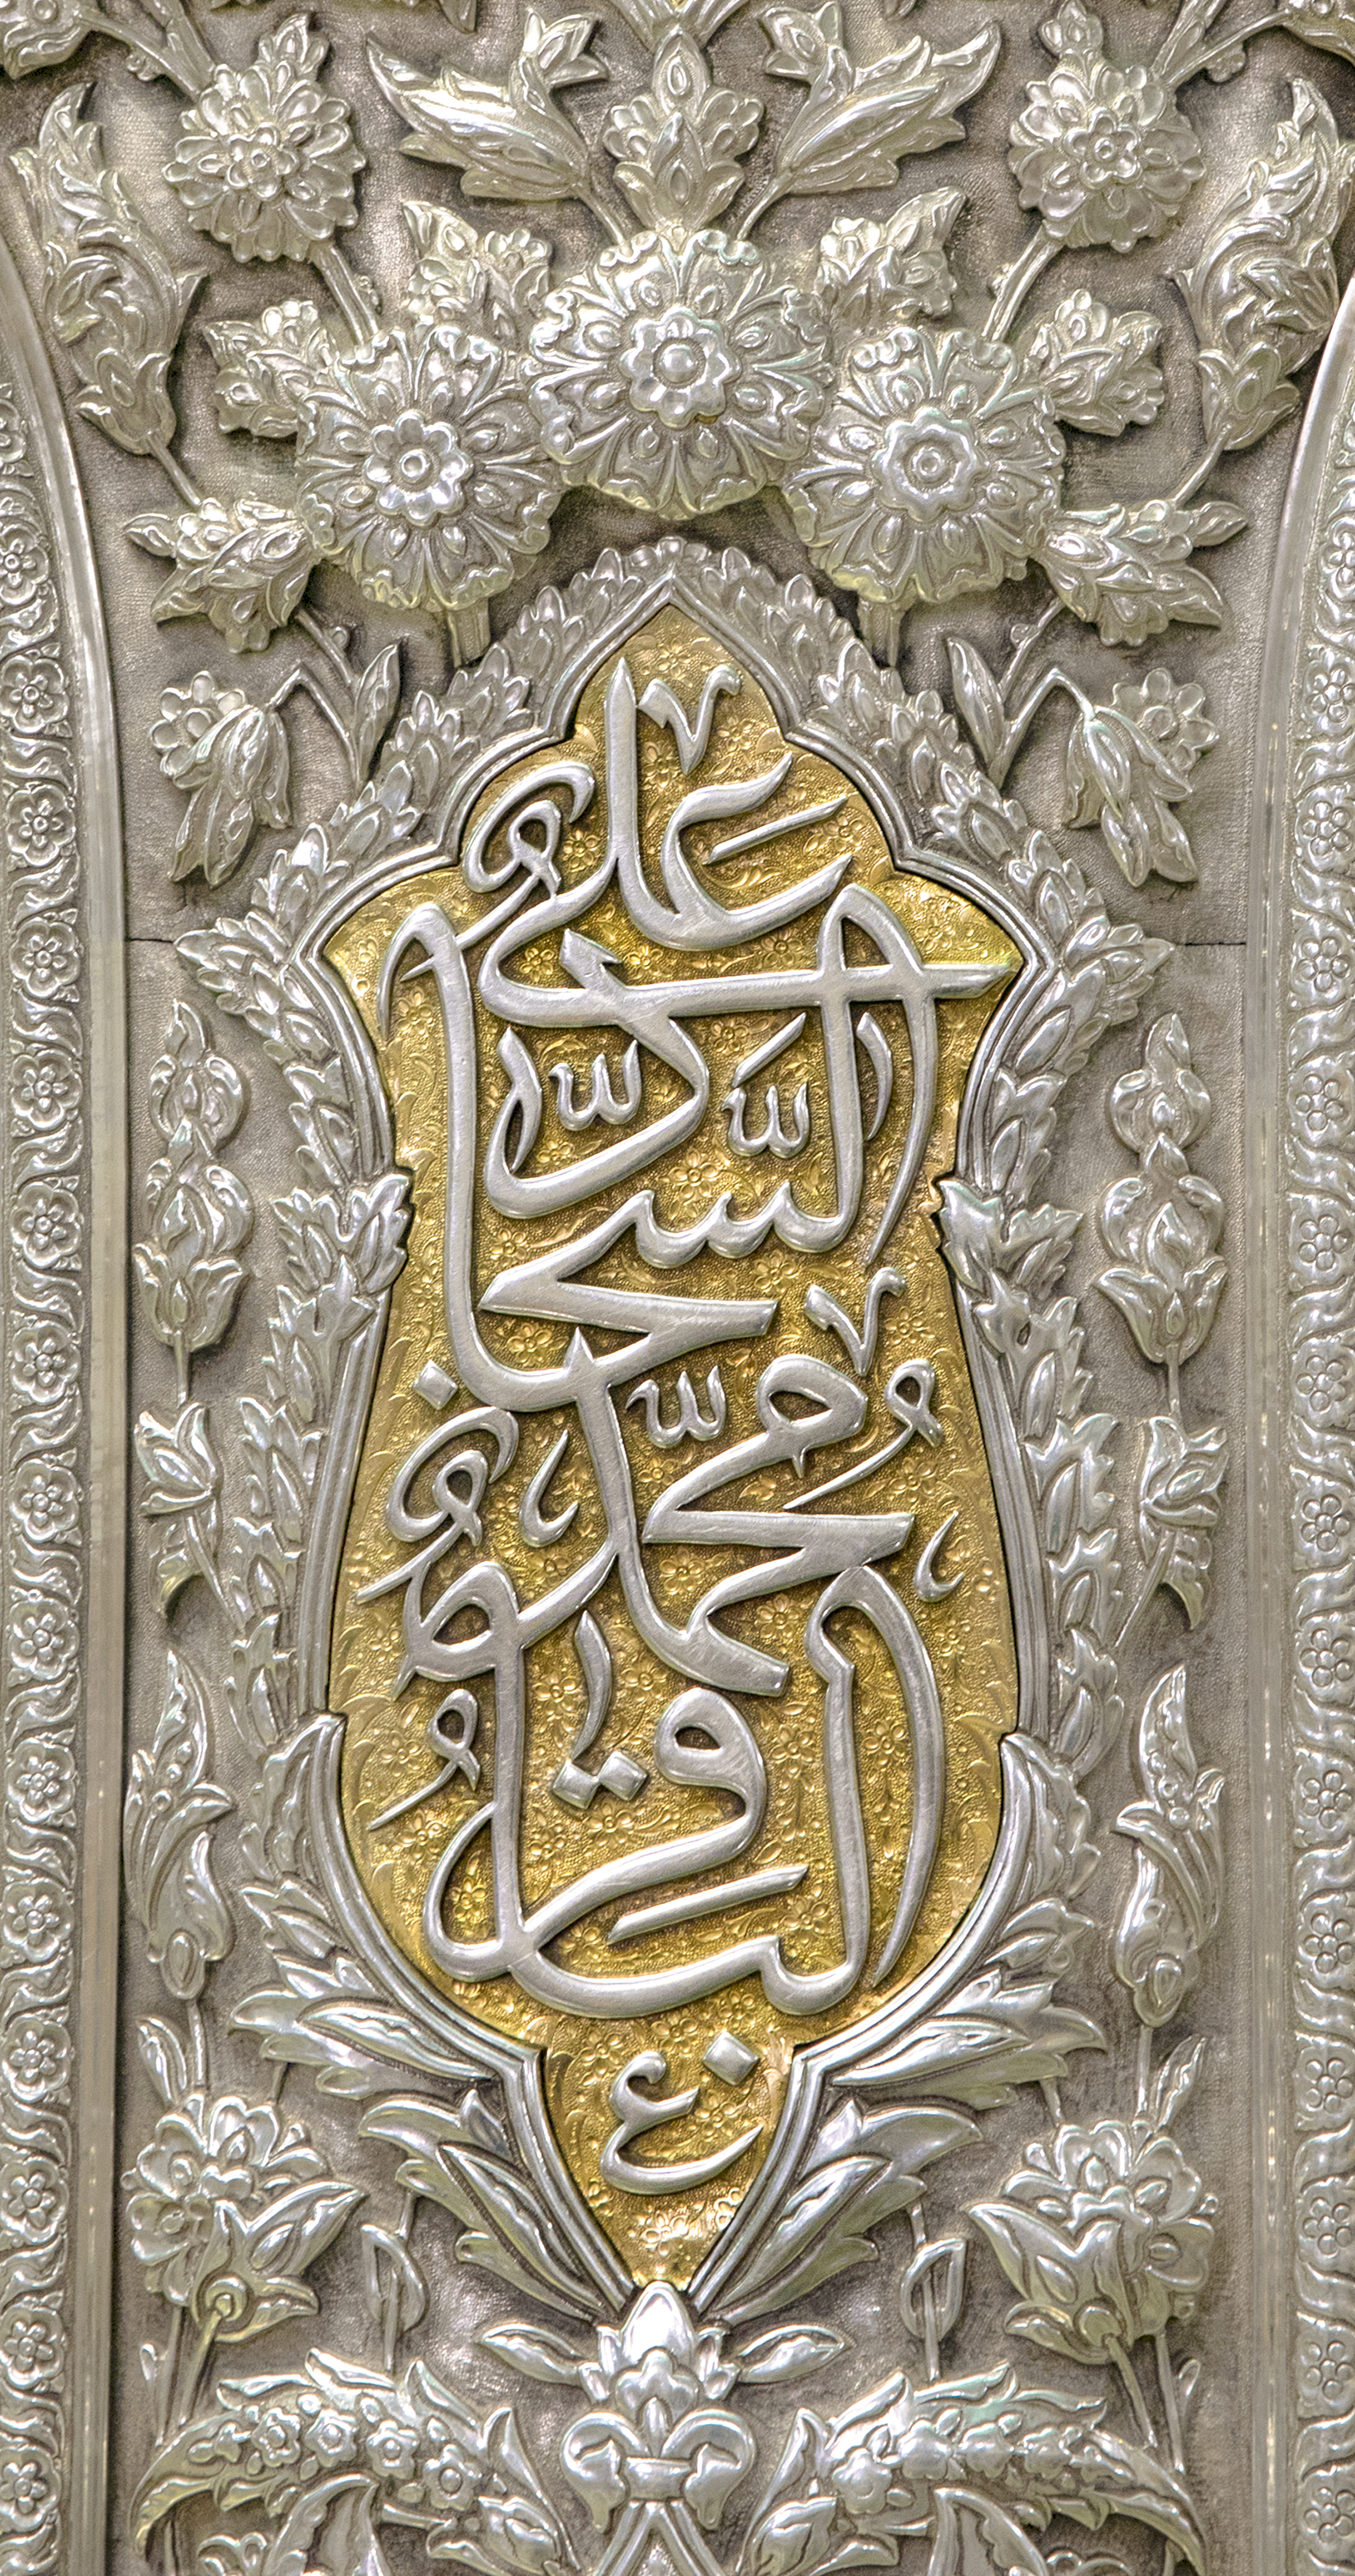 علي
السجاد
محمد
الباقر
ع